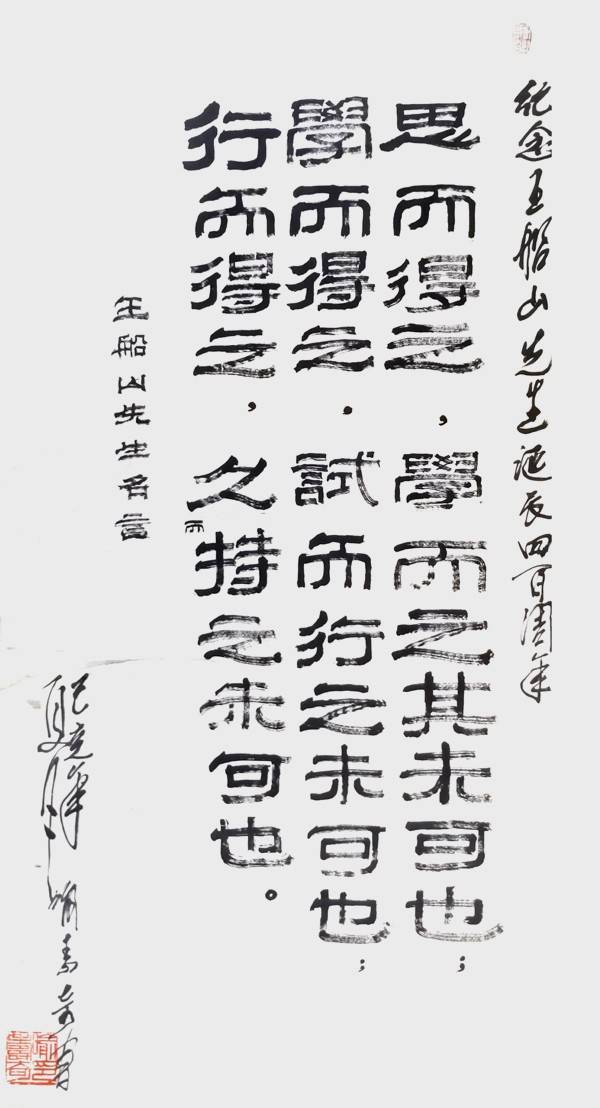 纪念王船山先生诞辰四百周年
思而得之，學而之其未可也；
學而得之．試而行之未可也；
行而得之，久而持之未可也。
王船山先生名言
己亥年